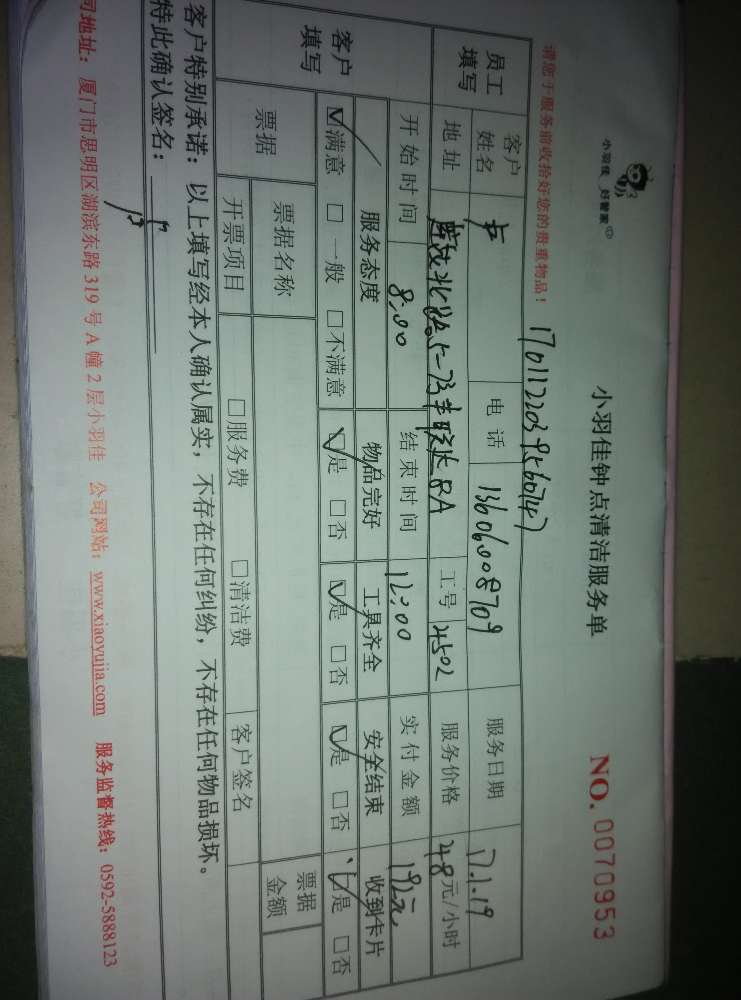 小羽佳 好管家
小羽佳钟点清洁服务单
NO. 0070953
请您于服务前收拾好您的贵重物品！
1701122039560747
员工填写
客户姓名 卢 电话 13606008709 服务日期 17.1.19
地址 5-73 8A 工号 4502 服务价格 48元/小时
开始时间 8:00 结束时间 12:00 实付金额 192元
客户填写
服务态度 物品完好 工具齐全 安全结束 收到卡片
☑满意 □一般 □不满意 ☑是 □否 ☑是 □否 ☑是 □否 ☑是 □否
票据 票据名称 票据金额
开票项目 □服务费 □清洁费 客户签名
客户特别承诺：以上填写经本人确认属实，不存在任何纠纷，不存在任何物品损坏。
特此确认签名：
司地址：厦门市思明区湖滨东路 319 号 A 幢 2 层小羽佳 公司网站：www.xiaoyujia.com 服务监督热线：0592-5888123